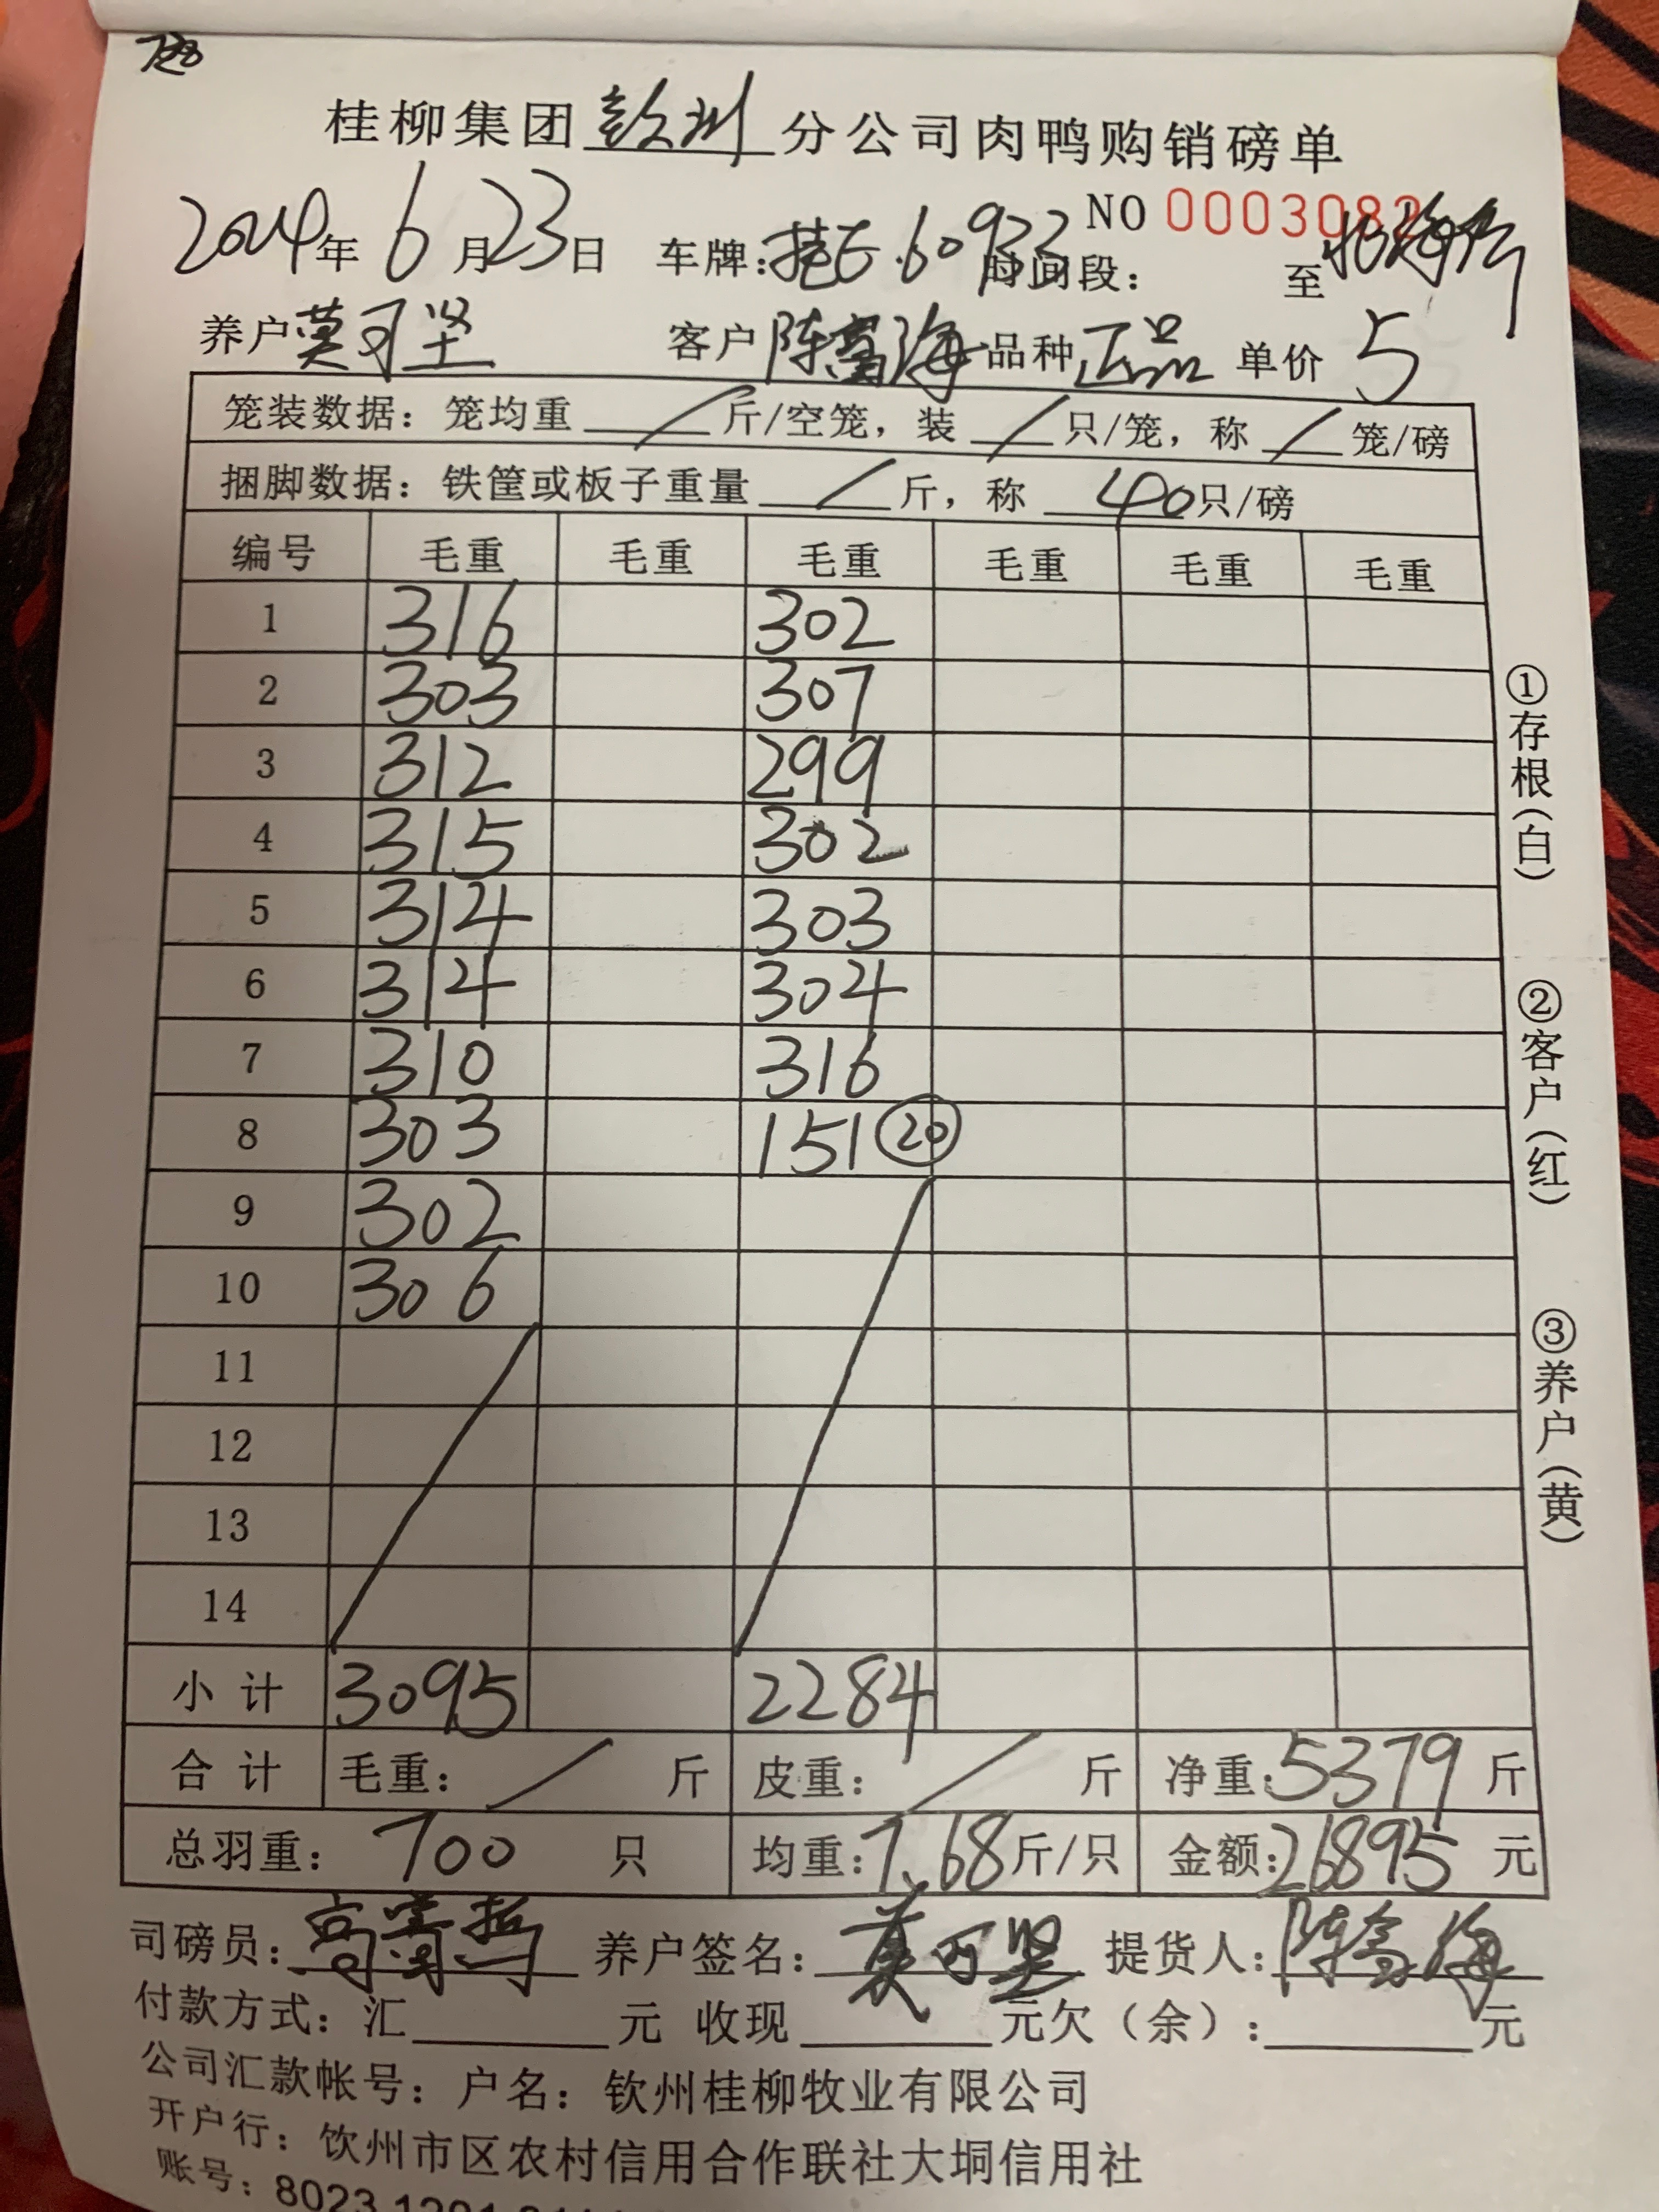 桂柳集团钦州分公司肉鸭购销磅单
NO 0003082
2024年6月23日 车牌: 60933 时间段: 至
养户莫可坚 客户陈富海 品种正品 单价 5
笼装数据: 笼均重 / 斤/空笼, 装 / 只/笼, 称 / 笼/磅
捆脚数据: 铁筐或板子重量 / 斤, 称 40只/磅
编号 毛重 毛重 毛重 毛重 毛重 毛重
1 316 302
2 303 307
3 312 299
4 315 302
5 314 303
6 314 304
7 310 316
8 303 151 ⑳
9 302
10 306
11
12
13
14
小 计 3095 2284
合 计 毛重: / 斤 皮重: / 斤 净重: 5379 斤
总羽重: 700 只 均重: 7.68斤/只 金额: 26895 元
司磅员: 养户签名: 莫可坚 提货人: 陈富海
付款方式: 汇 元 收现 元欠(余): 元
公司汇款帐号: 户名: 钦州桂柳牧业有限公司
开户行: 钦州市区农村信用合作联社大垌信用社
账号: 8023
①存根(白)
②客户(红)
③养户(黄)